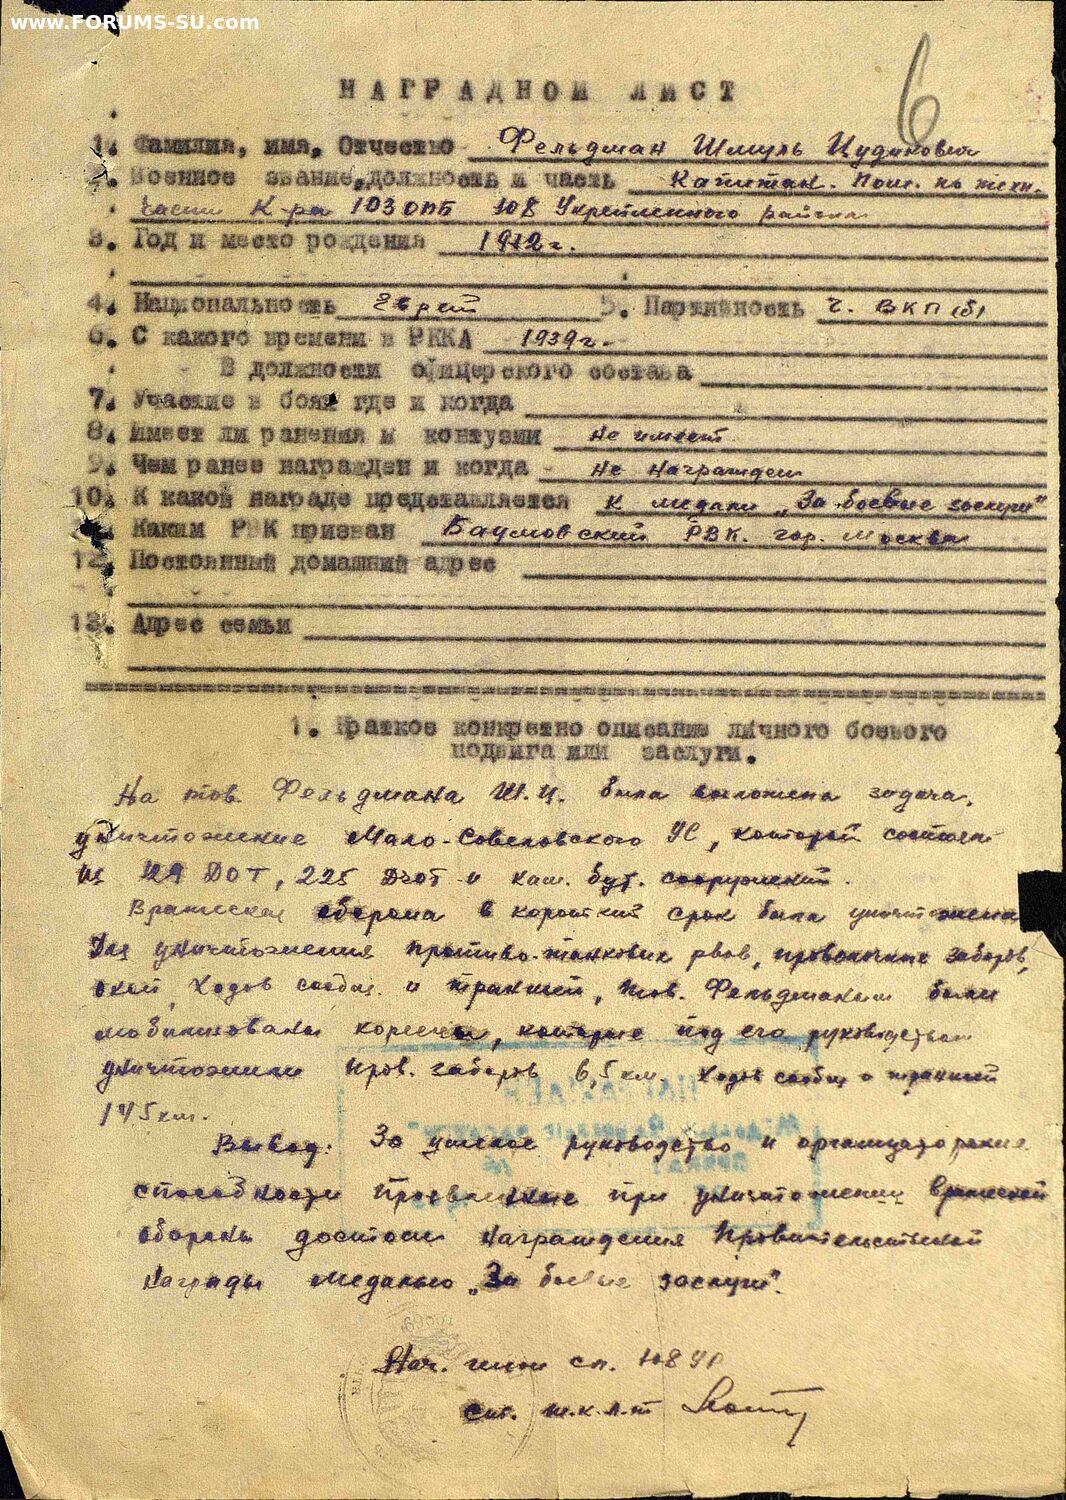 www.FORUMS-SU.com
6
НАГРАДНОЙ ЛИСТ
1. Фамилия, имя, Отчество Фельдман Шмуль Ицудикович
2. Военное звание, должность и часть Капитан. Пом. по техн.
части К-ра 103 ОПБ 108 Укрепленного района
3. Год и место рождения 1912г.
4. Национальность Еврей 5. Партийность Ч. ВКП(б)
6. С какого времени в РККА 1939г.
В должности офицерского состава
7. Участие в боях где и когда
8. Имеет ли ранения и контузии не имеет
9. Чем ранее награжден и когда не награжден
10. К какой награде представляется к медали „За боевые заслуги"
Каким РВК призван Баумовский РВК. гор. Москва
12. Постоянный домашний адрес
13. Адрес семьи
1. Краткое конкретно описание личного боевого
подвига или заслуги.
На тов. Фельдмана Ш.И. была возложена задача,
уничтожение Мало-Совеловского УС, который состоял
из 129 ДОТ, 225 Дзот и кам. бут. сооружений.
Вражеская оборона в короткий срок была уничтожена
Для уничтожения противо-танковых рвов, проволочных заборов,
Ходов сообщ. и траншей, тов. Фельдманом были
мобилизованы корейцы, которые под его руководством
уничтожили пров. заборов 6,5 км. Ходов сообщ и траншей
145 км.
Вывод: За умелое руководство и организаторские
способности проявленные при уничтожении вражеской
обороны достоин награждения Правительственной
награды медалью „За боевые заслуги".
Нач. сп. 108 УР
Ст. т-к л-т